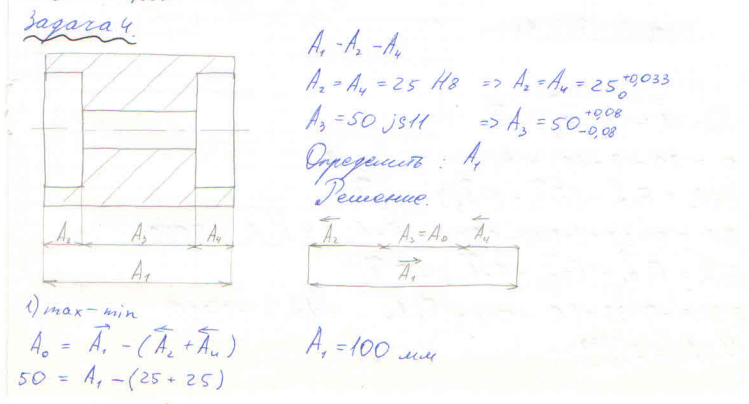 Задача 4.
A₁ - A₂ - A₄
A₂ = A₄ = 25 H8 => A₂ = A₄ = 25₀⁺⁰'⁰³³
A₃ = 50 js11 => A₃ = 50₋₀,₀₈⁺⁰'⁰⁸
Определить : A₁
Решение.
A₂ A₃ A₄
A₁
A₂ A₃ = A₀ A₄
A₁
1) max - min
A₀ = A₁ - (A₂ + A₄)
A₁ = 100 мм
50 = A₁ - (25 + 25)